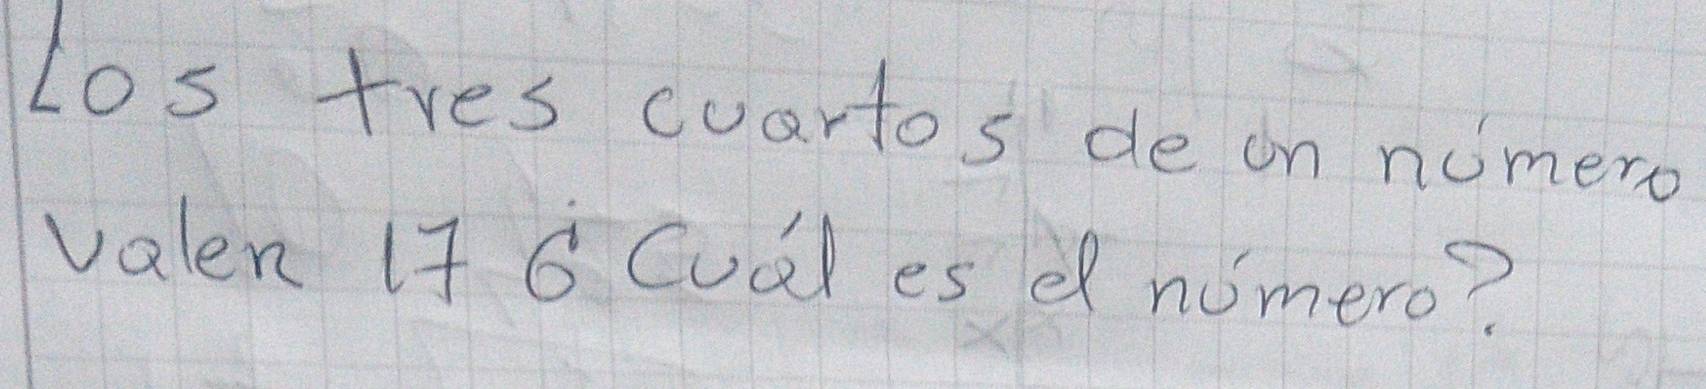 Los tres cuartos de un número
valen 17 ¿Cuál es el número?